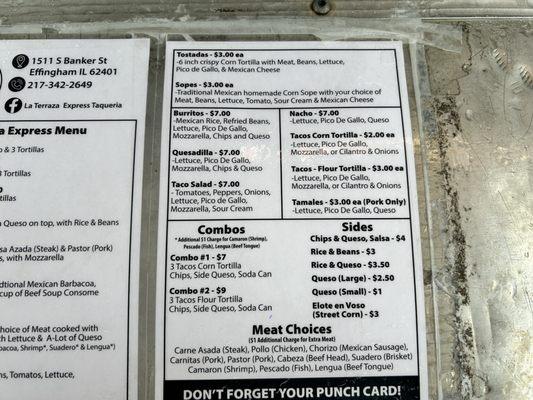 1511 S Banker St
Effingham IL 62401
217-342-2649
La Terraza Express Taqueria
a Express Menu
& 3 Tortillas
Tortillas
Queso on top, with Rice & Beans
sa Azada (Steak) & Pastor (Pork)
s, with Mozzarella
ditional Mexican Barbacoa,
cup of Beef Soup Consome
hoice of Meat cooked with
th Lettuce & A-Lot of Queso
bacoa, Shrimp*, Suadero* & Lengua*)
ns, Tomatos, Lettuce,
Tostadas - $3.00 ea
-6 inch crispy Corn Tortilla with Meat, Beans, Lettuce,
Pico de Gallo, & Mexican Cheese
Sopes - $3.00 ea
-Traditional Mexican homemade Corn Sope with your choice of
Meat, Beans, Lettuce, Tomato, Sour Cream & Mexican Cheese
Burritos - $7.00
-Mexican Rice, Refried Beans,
Lettuce, Pico De Gallo,
Mozzarella, Chips and Queso
Quesadilla - $7.00
-Lettuce, Pico De Gallo,
Mozzarella, Chips & Queso
Taco Salad - $7.00
- Tomatoes, Peppers, Onions,
Lettuce, Pico de Gallo,
Mozzarella, Sour Cream
Nacho - $7.00
-Lettuce, Pico De Gallo, Queso
Tacos Corn Tortilla - $2.00 ea
-Lettuce, Pico De Gallo,
Mozzarella, or Cilantro & Onions
Tacos - Flour Tortilla - $3.00 ea
-Lettuce, Pico De Gallo,
Mozzarella, or Cilantro & Onions
Tamales - $3.00 ea (Pork Only)
-Lettuce, Pico De Gallo, Queso
Combos
* Additional $1 Charge for Camaron (Shrimp),
Pescado (Fish), Lengua (Beef Tongue)
Combo #1 - $7
3 Tacos Corn Tortilla
Chips, Side Queso, Soda Can
Combo #2 - $9
3 Tacos Flour Tortilla
Chips, Side Queso, Soda Can
Sides
Chips & Queso, Salsa - $4
Rice & Beans - $3
Rice & Queso - $3.50
Queso (Large) - $2.50
Queso (Small) - $1
Elote en Voso
(Street Corn) - $3
Meat Choices
($1 Additional Charge for Extra Meat)
Carne Asada (Steak), Pollo (Chicken), Chorizo (Mexican Sausage),
Carnitas (Pork), Pastor (Pork), Cabeza (Beef Head), Suadero (Brisket)
Camaron (Shrimp), Pescado (Fish), Lengua (Beef Tongue)
DON'T FORGET YOUR PUNCH CARD!